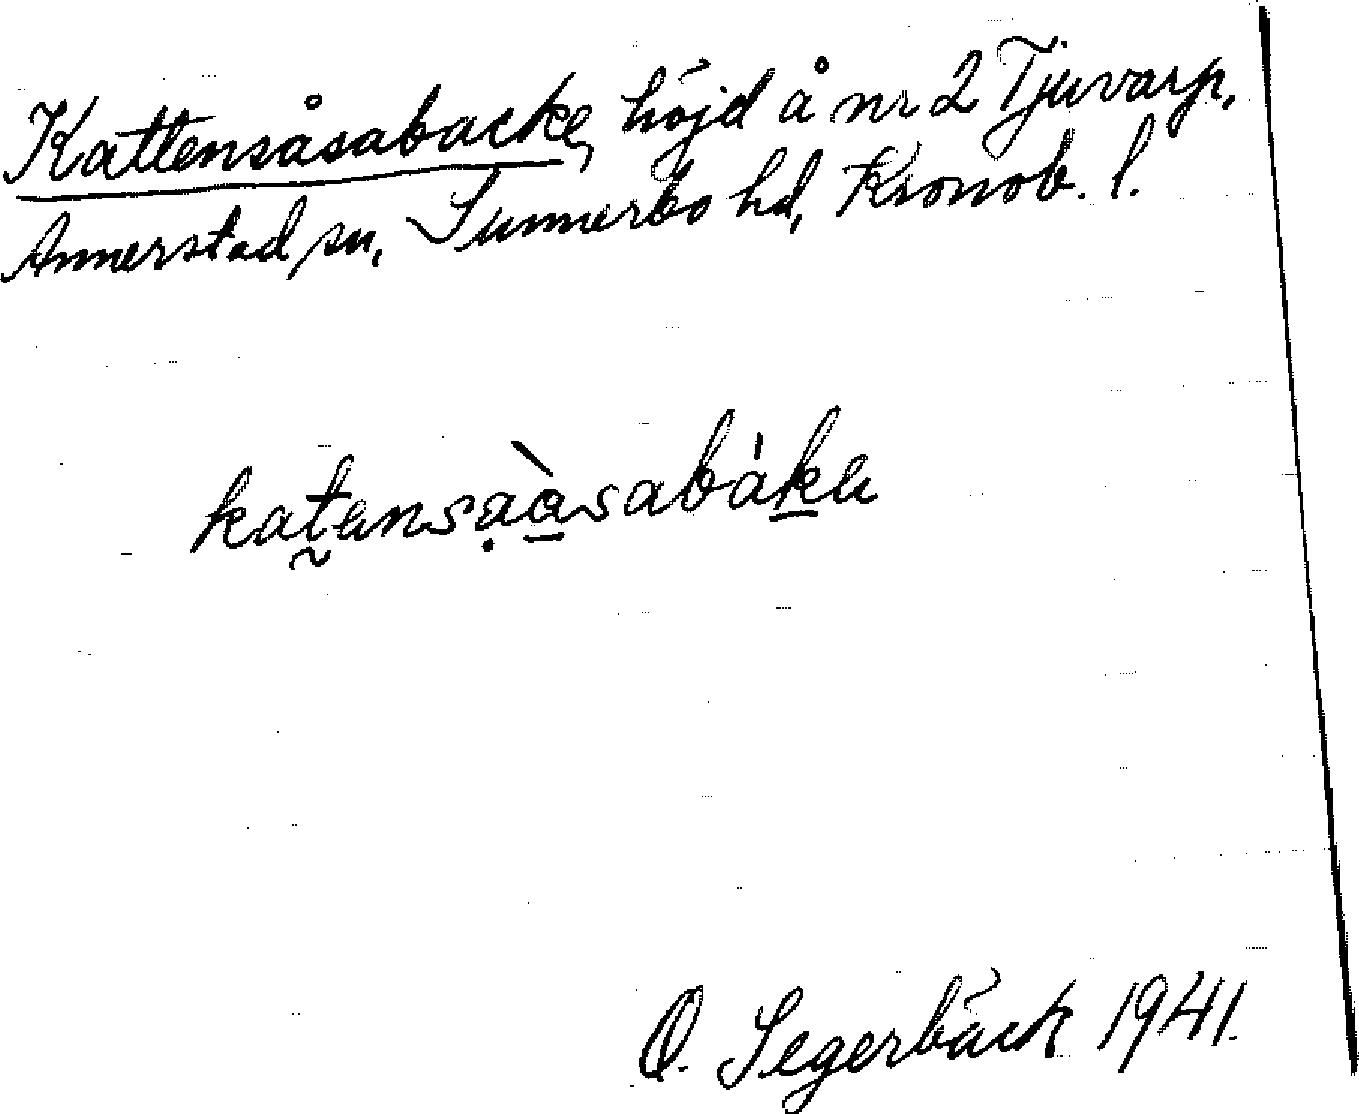 Kattensåsabacke, höjd å nr 2 Tjuvarp,
Annerstad sn, Sunnerbo hd, Kronob. l.
kat̰ansạà̱sabàḵa
O. Segerbäck 1941.